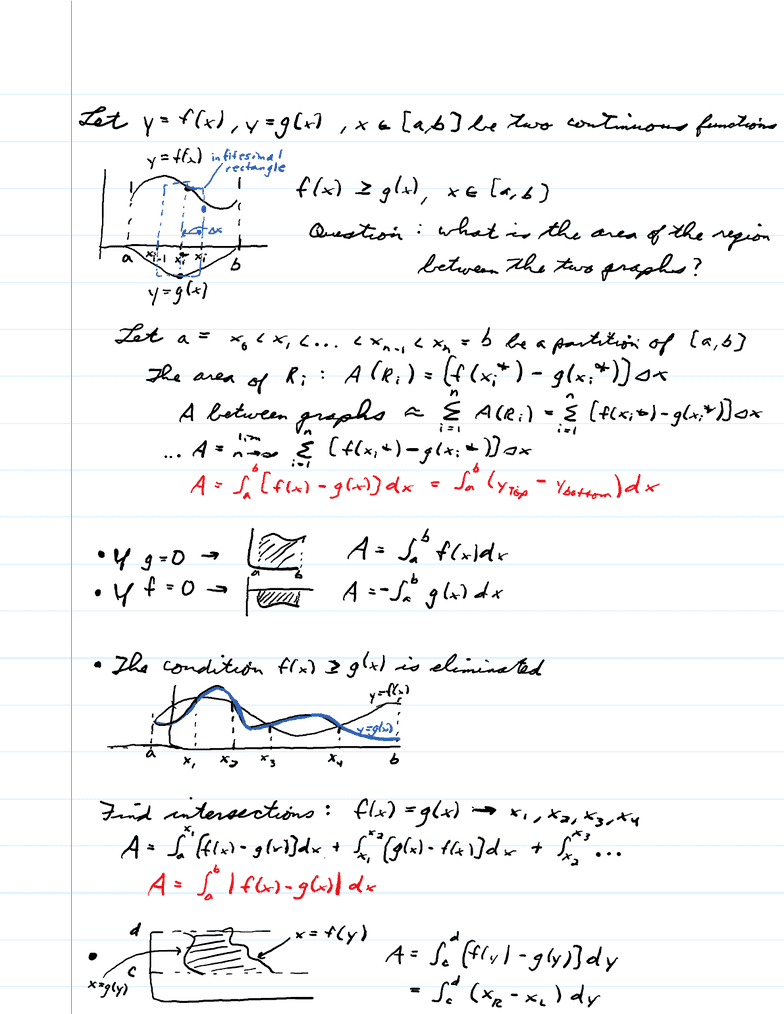 Let y = f(x), y = g(x), x ∈ [a,b] be two continuous functions
y = f(x) infitesimal rectangle
f(x) ≥ g(x), x ∈ [a,b]
Δx
Question: what is the area of the region
a x_{i-1} x_i^* x_i b
between the two graphs?
y = g(x)
Let a = x_0 < x_1 < ... < x_{n-1} < x_n = b be a partition of [a,b]
The area of R_i : A(R_i) = [f(x_i^*) - g(x_i^*)] Δx
A between graphs ≈ \sum_{i=1}^{n} A(R_i) = \sum_{i=1}^{n} [f(x_i^*) - g(x_i^*)] Δx
... A = \lim_{n→∞} \sum_{i=1}^{n} [f(x_i^*) - g(x_i^*)] Δx
A = ∫_a^b [f(x) - g(x)] dx = ∫_a^b (y_{Top} - y_{bottom}) dx
• If g = 0 → a b A = ∫_a^b f(x) dx
• If f = 0 → A = -∫_a^b g(x) dx
• The condition f(x) ≥ g(x) is eliminated
y = f(x)
y = g(x)
a x_1 x_2 x_3 x_4 b
Find intersections: f(x) = g(x) → x_1, x_2, x_3, x_4
A = ∫_a^{x_1} [f(x) - g(x)] dx + ∫_{x_1}^{x_2} [g(x) - f(x)] dx + ∫_{x_2}^{x_3} ...
A = ∫_a^b |f(x) - g(x)| dx
d x = f(y)
• A = ∫_c^d [f(y) - g(y)] dy
c
x = g(y)
= ∫_c^d (x_R - x_L) dy